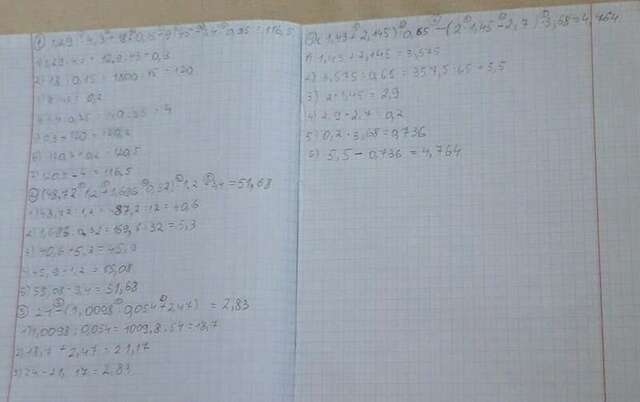 1) 1,29 : 4,3 + 18 : 0,15 + 9 : 45 - 1,4 : 0,35 = 116,5
1) 1,29 : 4,3 = 12,9 : 43 = 0,3
2) 18 : 0,15 = 1800 : 15 = 120
3) 9 : 45 = 0,2
4) 1,4 : 0,35 = 140 : 35 = 4
5) 0,3 + 120 = 120,3
6) 120,3 + 0,2 = 120,5
7) 120,5 - 4 = 116,5
2) (48,72 : 1,2 + 1,696 : 0,32) · 1,2 - 3,4 = 51,68
1) 48,72 : 1,2 = 487,2 : 12 = 40,6
2) 1,696 : 0,32 = 169,6 : 32 = 5,3
3) 40,6 + 5,3 = 45,9
4) 45,9 · 1,2 = 55,08
5) 55,08 - 3,4 = 51,68
3) 24 - (1,0098 : 0,054 + 2,47) = 2,83
1) 1,0098 : 0,054 = 1009,8 : 54 = 18,7
2) 18,7 + 2,47 = 21,17
3) 24 - 21,17 = 2,83
(1,43 + 2,145) : 0,65 - (2 · 1,45 - 2,7) · 3,68 = 4,764
1) 1,43 + 2,145 = 3,575
2) 3,575 : 0,65 = 357,5 : 65 = 5,5
3) 2 · 1,45 = 2,9
4) 2,9 - 2,7 = 0,2
5) 0,2 · 3,68 = 0,736
6) 5,5 - 0,736 = 4,764